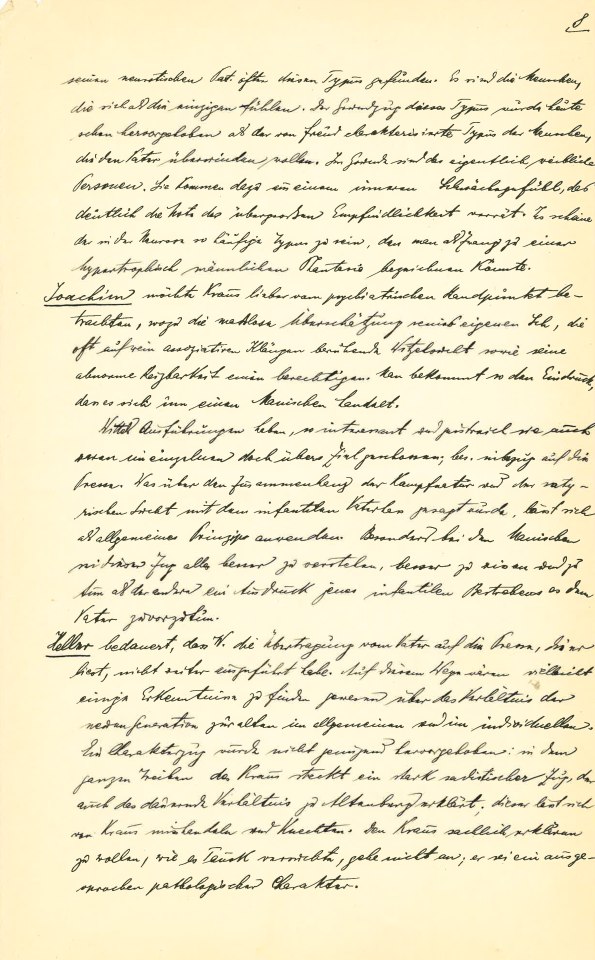 8
seinen neurotischen Pat. öfter diesen Typus gefunden. Es sind die Menschen,
die sich als die einzigen fühlen. Der Grundzug dieses Typus wurde heute
schon hervorgehoben als der von Freud charakterisierte Typus der Menschen,
die den Vater überwinden wollen. Im Grunde sind das eigentlich weibliche
Personen. Sie kommen dazu aus einem inneren Schwächegefühl, das
deutlich die Note der übergroßen Empfindlichkeit verrät. Es scheine
der in der Neurose so häufige Typus zu sein, den man als Zwang zu einer
hypertrophisch männlichen Phantasie bezeichnen könnte.
Joachim möchte Kraus lieber vom psychiatrischen Standpunkt be-
trachten, wozu die masslose Überschätzung seines eigenen Ich, die
oft auf rein assoziativen Klängen beruhende Witzelsucht sowie seine
abnorme Reizbarkeit einen berechtigen. Man bekommt so den Eindruck,
dass es sich um einen Manischen handelt.
Wittels Ausführungen haben, so interessant und geistreich sie auch
waren im einzelnen doch übers Ziel geschossen; bes. in bezug auf die
Presse. Was über den Zusammenhang der Kampfnatur und der saty-
rischen Sucht mit dem infantilen Vaterhass gesagt wurde, lässt sich
als allgemeines Prinzip anwenden. Besonders bei den Manischen
sei dieser Zug alles besser zu verstehen, besser zu wissen und zu
tun als der andere ein Ausdruck jenes infantilen Bestrebens es dem
Vater zuvorzutun.
Heller bedauert, dass W. die Übertragung vom Vater auf die Presse, die er
liest, nicht weiter ausgeführt habe. Auf diesem Wege wären vielleicht
einige Erkenntnisse zu finden gewesen über das Verhältnis der
neuen Generation zur alten im allgemeinen und im individuellen.
Ein Charakterzug wurde nicht genügend hervorgehoben: in dem
ganzen Treiben des Kraus steckt ein stark sadistischer Zug, der
auch das dauernde Verhältnis zu Altenberg erklärt; dieser lässt sich
von Kraus misshandeln und knechten. Den Kraus sachlich erklären
zu wollen, wie es Tausk versuchte, gehe nicht an; er sei ein ausge-
sprochen pathologischer Charakter.